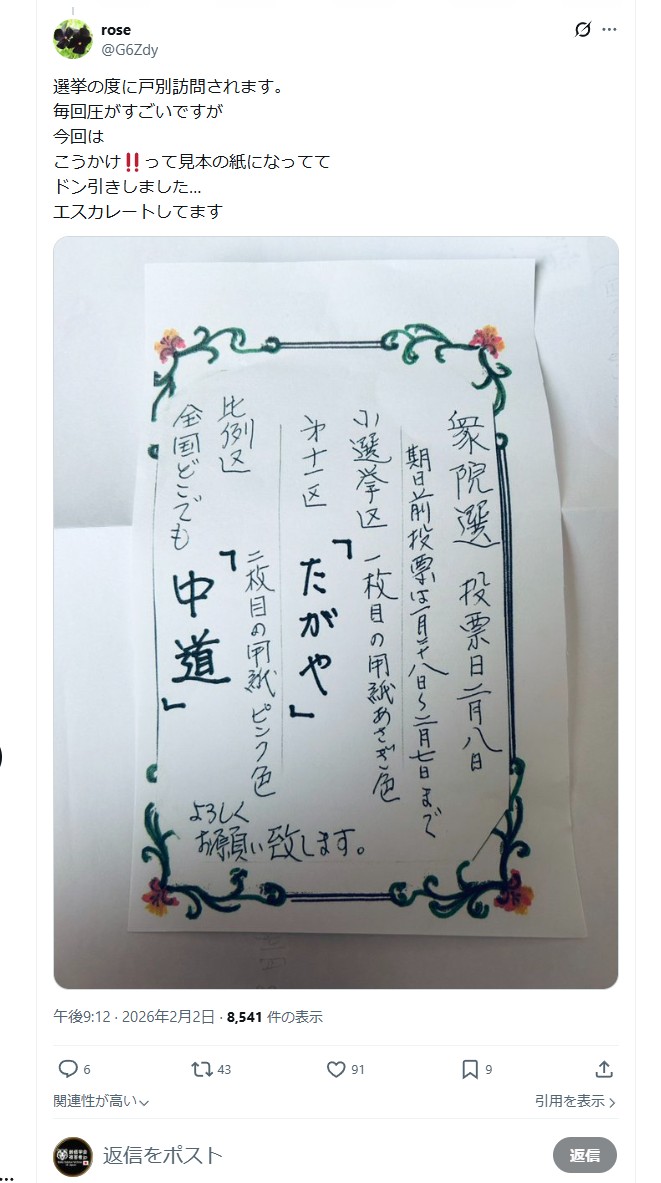 rose
@G6Zdy
選挙の度に戸別訪問されます。
毎回圧がすごいですが
今回は
こうかけ‼️って見本の紙になってて
ドン引きしました...
エスカレートしてます
衆院選 投票日二月八日
期日前投票は一月二十八日~二月七日まで
小選挙区 一枚目の用紙あさぎ色
第十一区 「たがや」
比例区 二枚目の用紙ピンク色
全国どこでも 「中道」
よろしく
お願い致します。
午後9:12 · 2026年2月2日 · 8,541 件の表示
6 43 91 9
関連性が高い 引用を表示
返信をポスト 返信